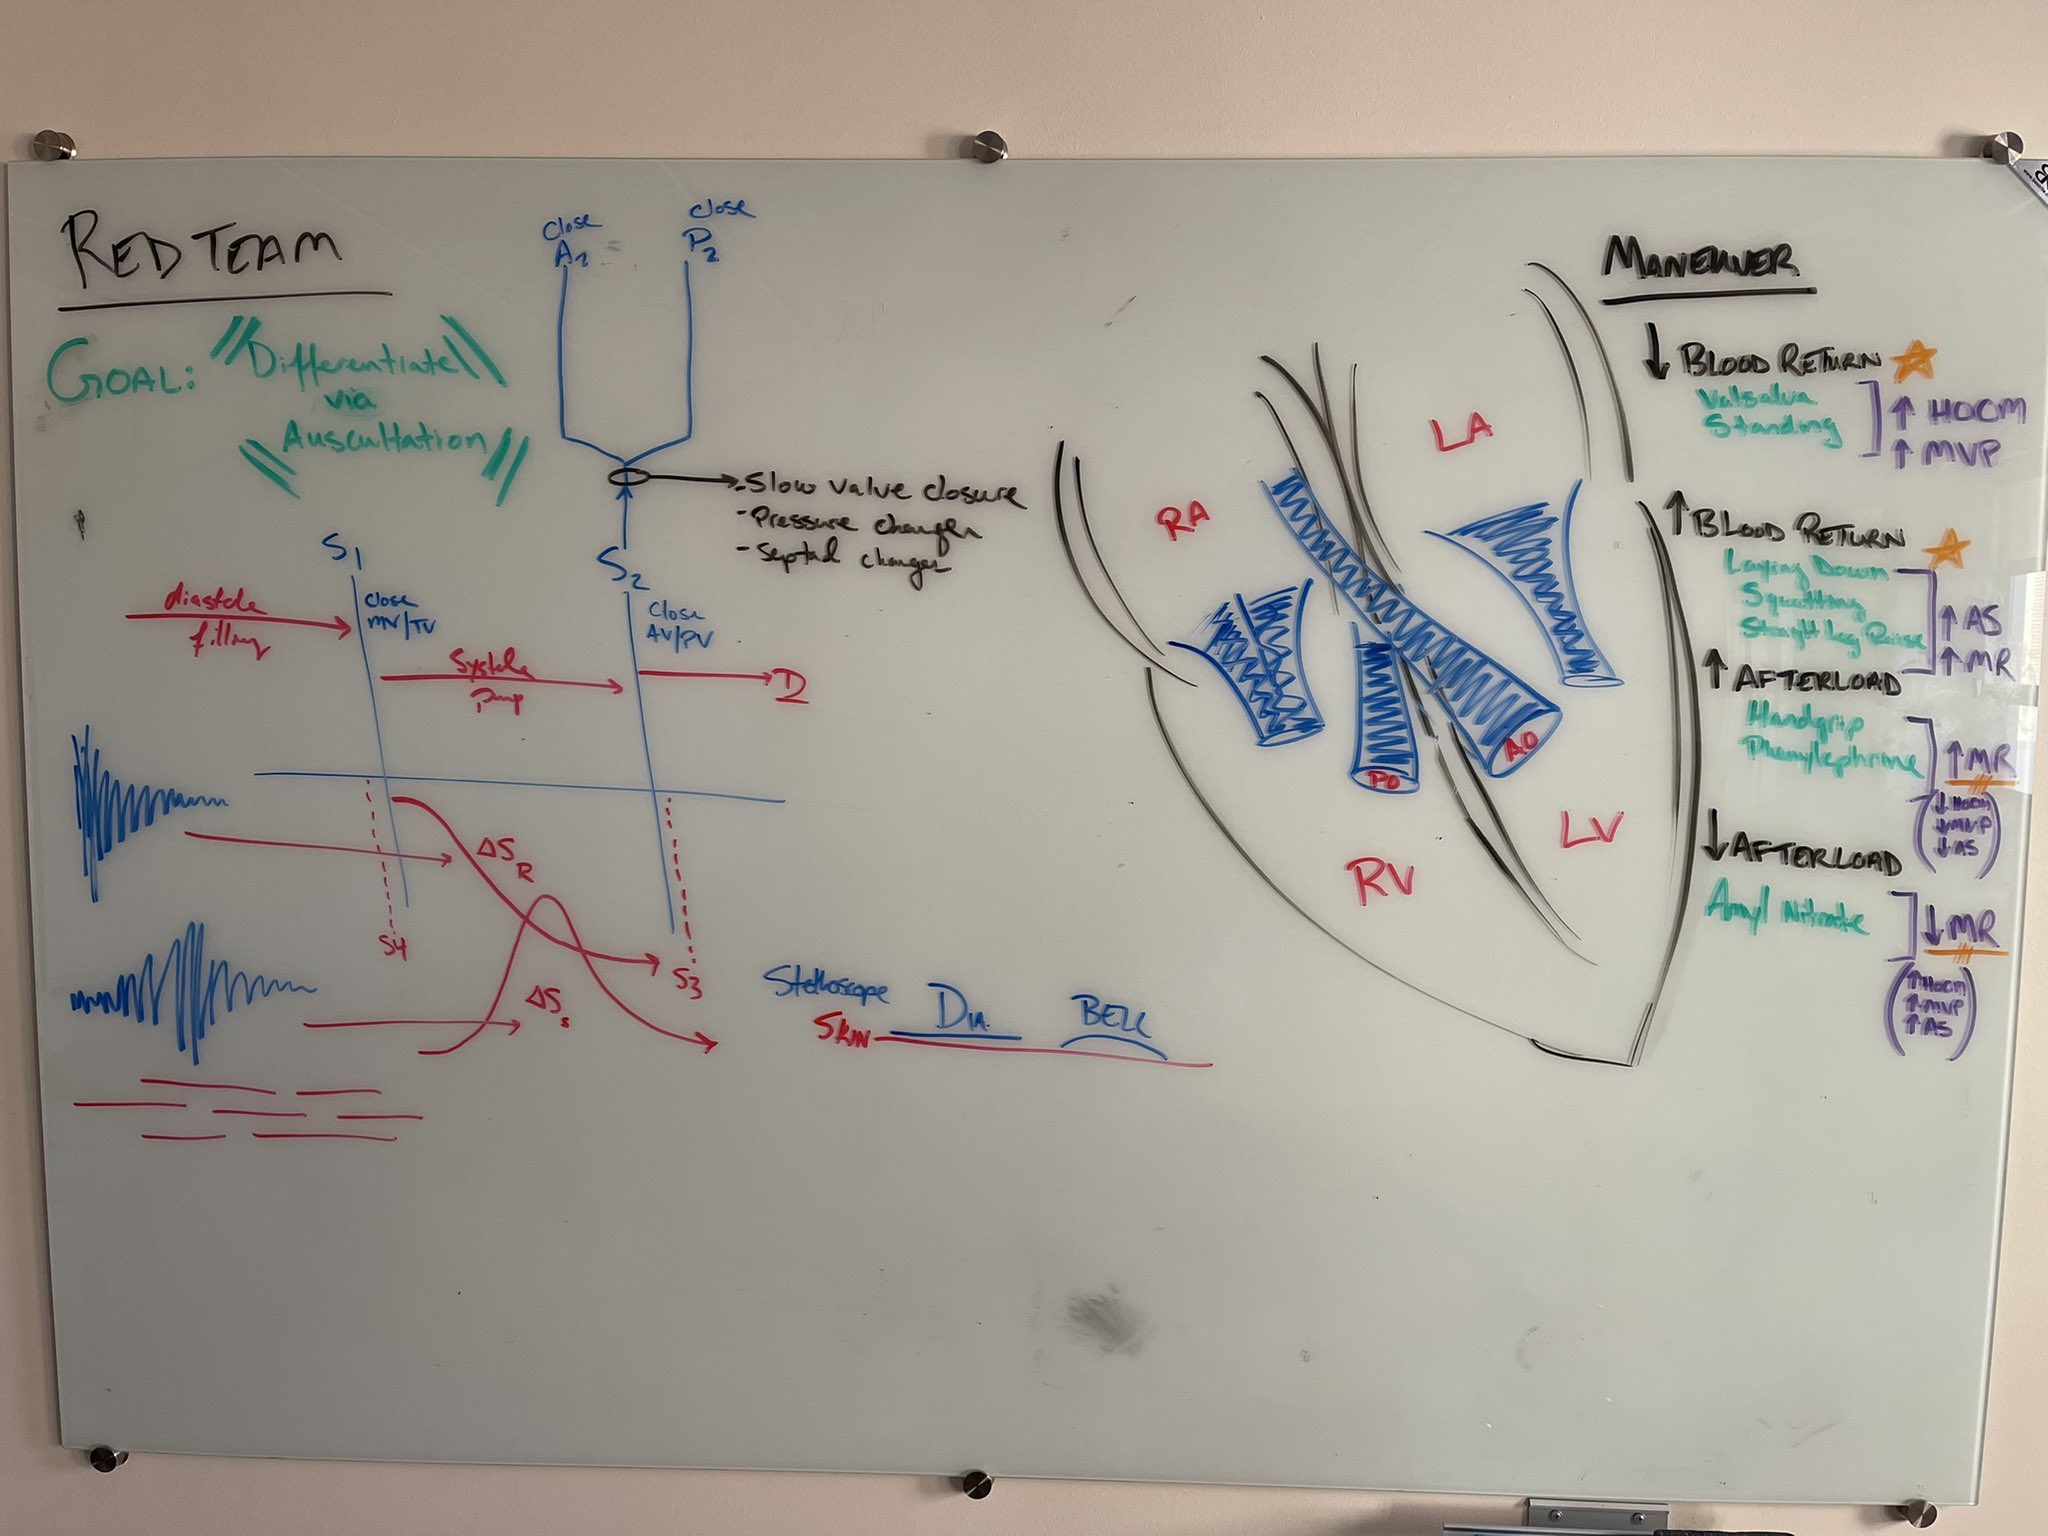 RED TEAM
GOAL:
Differentiate
via
Auscultation
close
A2
close
P2
- Slow valve closure
- Pressure changes
- Septal changes
S1
S2
diastole
filling
close
MV/TV
close
AV/PV
Systole
Pump
D
ΔSR
ΔSs
S4
S3
Stethoscope
DIA.
BELL
SKIN
RA
LA
RV
LV
PO
AO
MANEUVER
↓ BLOOD RETURN
Valsalva
Standing
↑ HOCM
↑ MVP
↑ BLOOD RETURN
Laying Down
Squatting
Straight Leg Raise
↑ AS
↑ MR
↑ AFTERLOAD
Handgrip
Phenylephrine
↑ MR
(↓ HOCM
↓ MVP
↓ AS)
↓ AFTERLOAD
Amyl Nitrate
↓ MR
(↑ HOCM
↑ MVP
↑ AS)